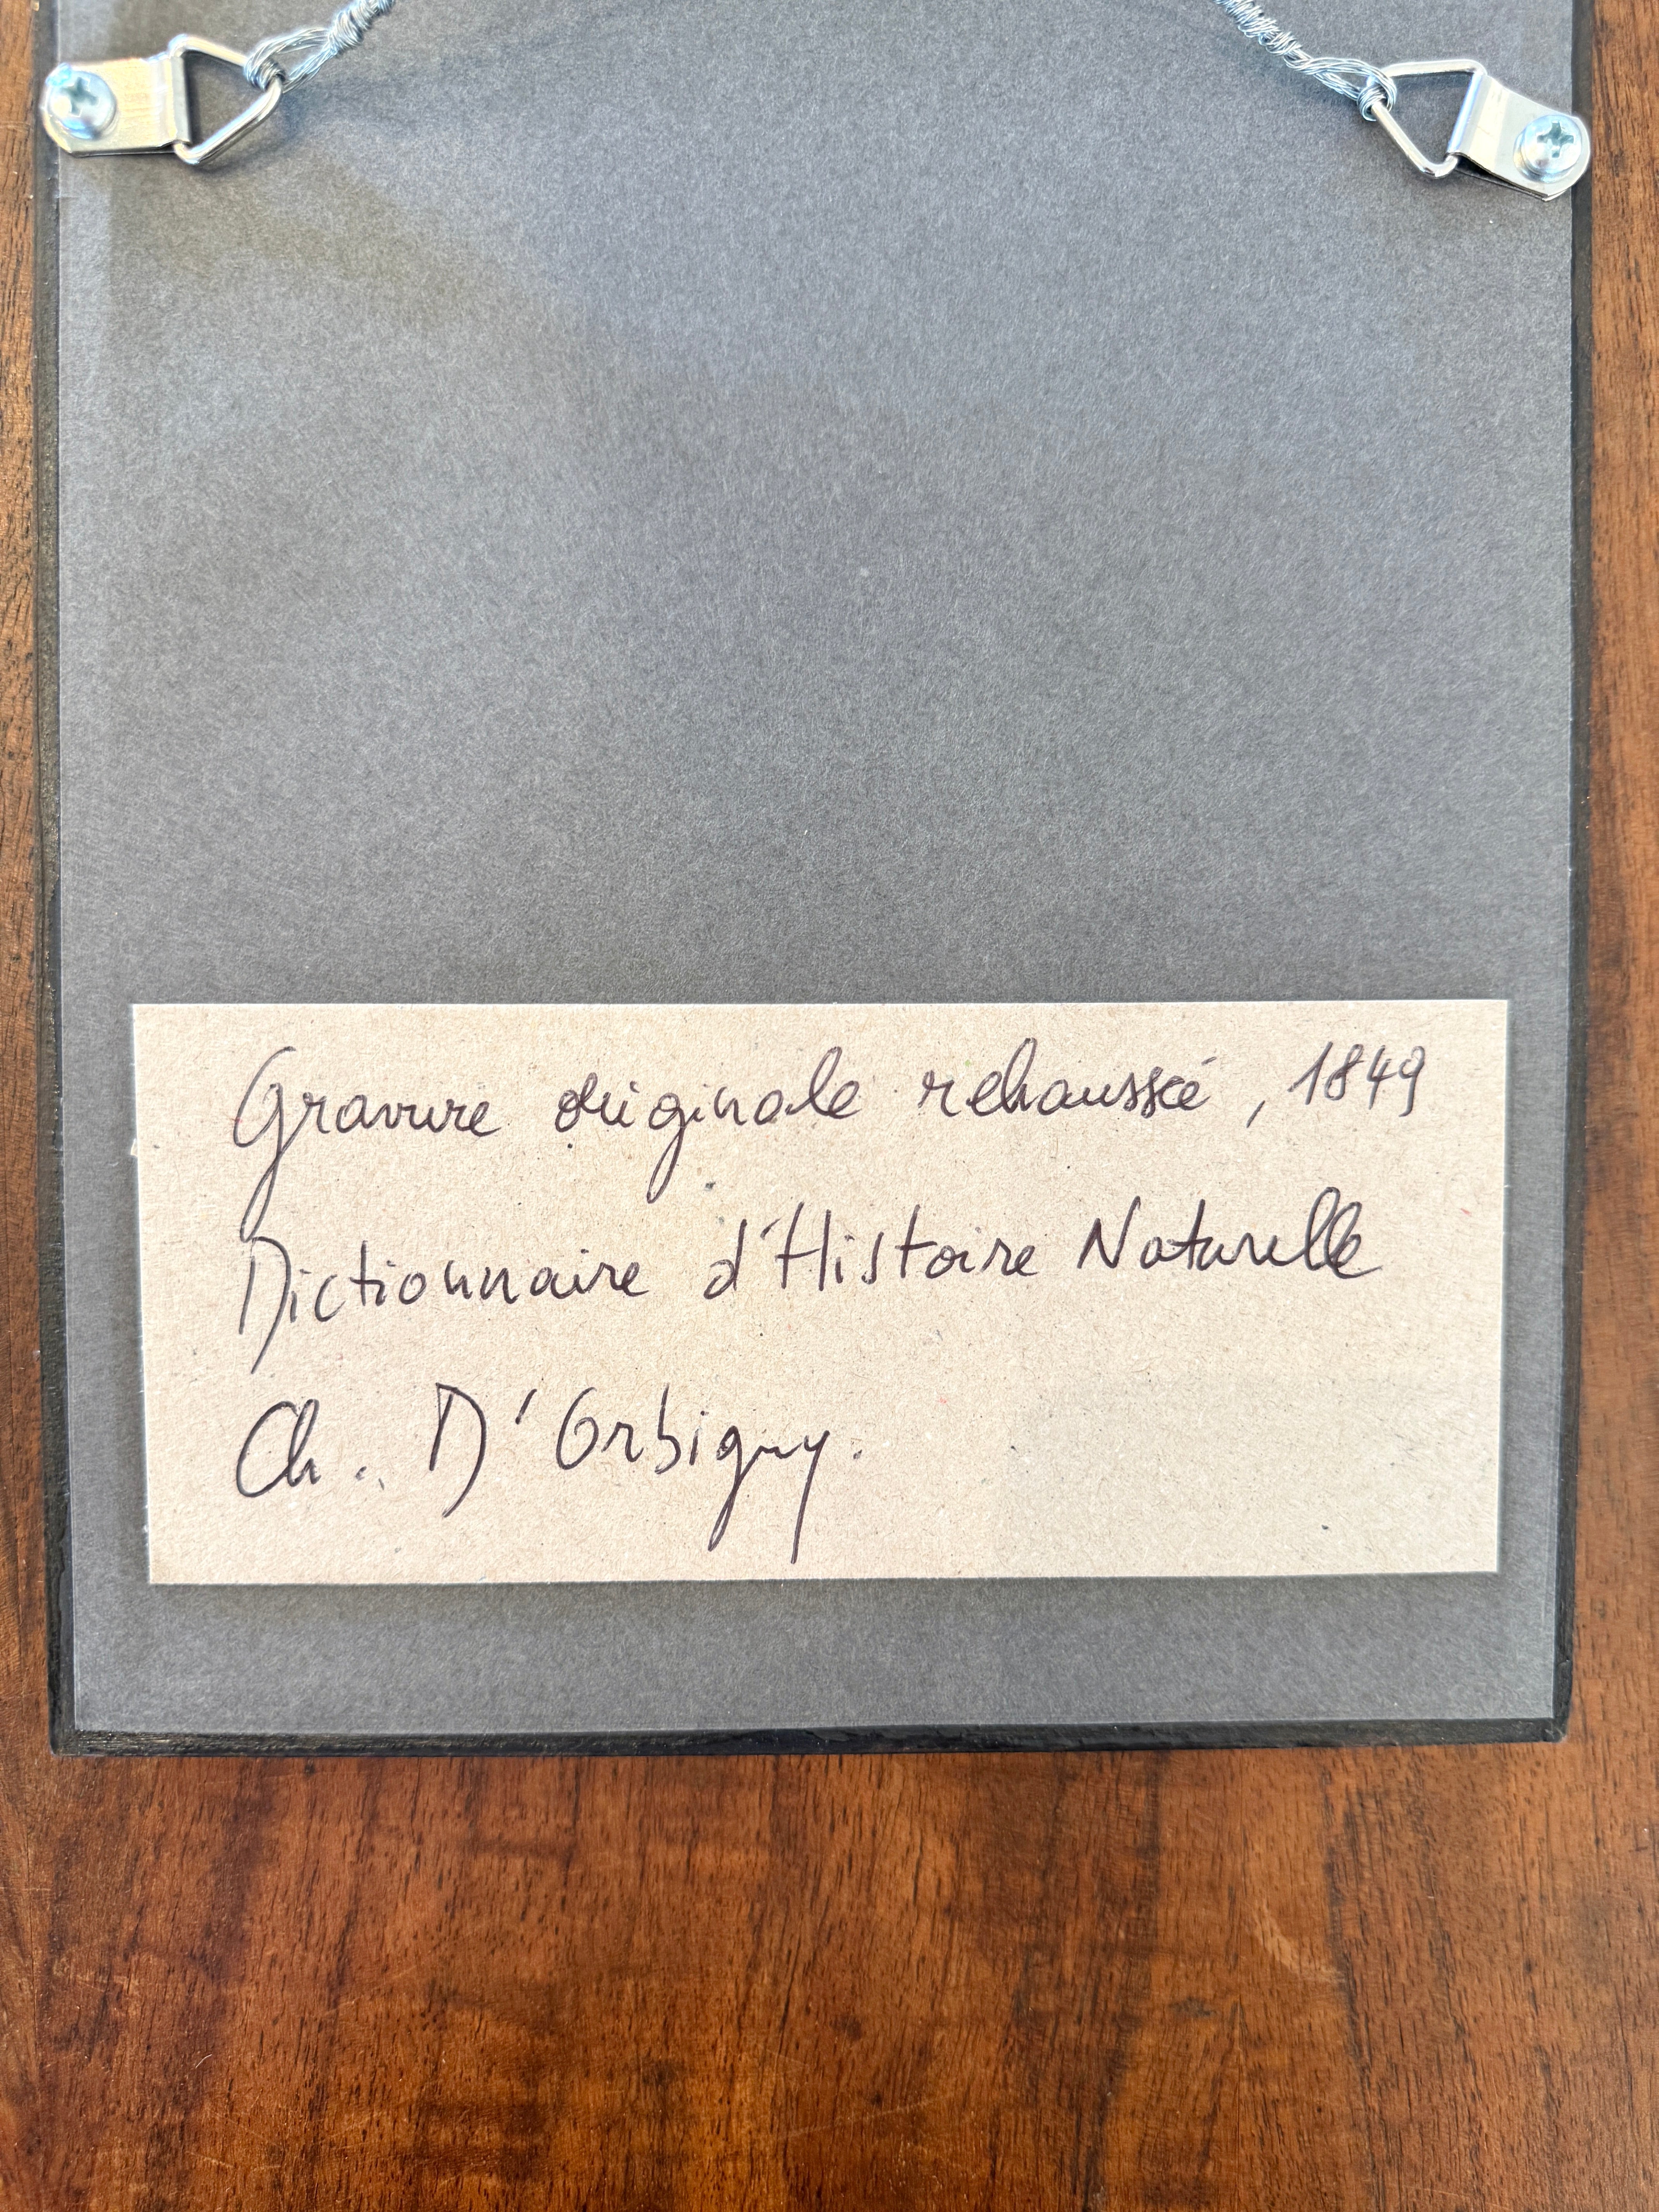 Gravure originale rehaussée, 1849
Dictionnaire d'Histoire Naturelle
Ch. D'Orbigny.